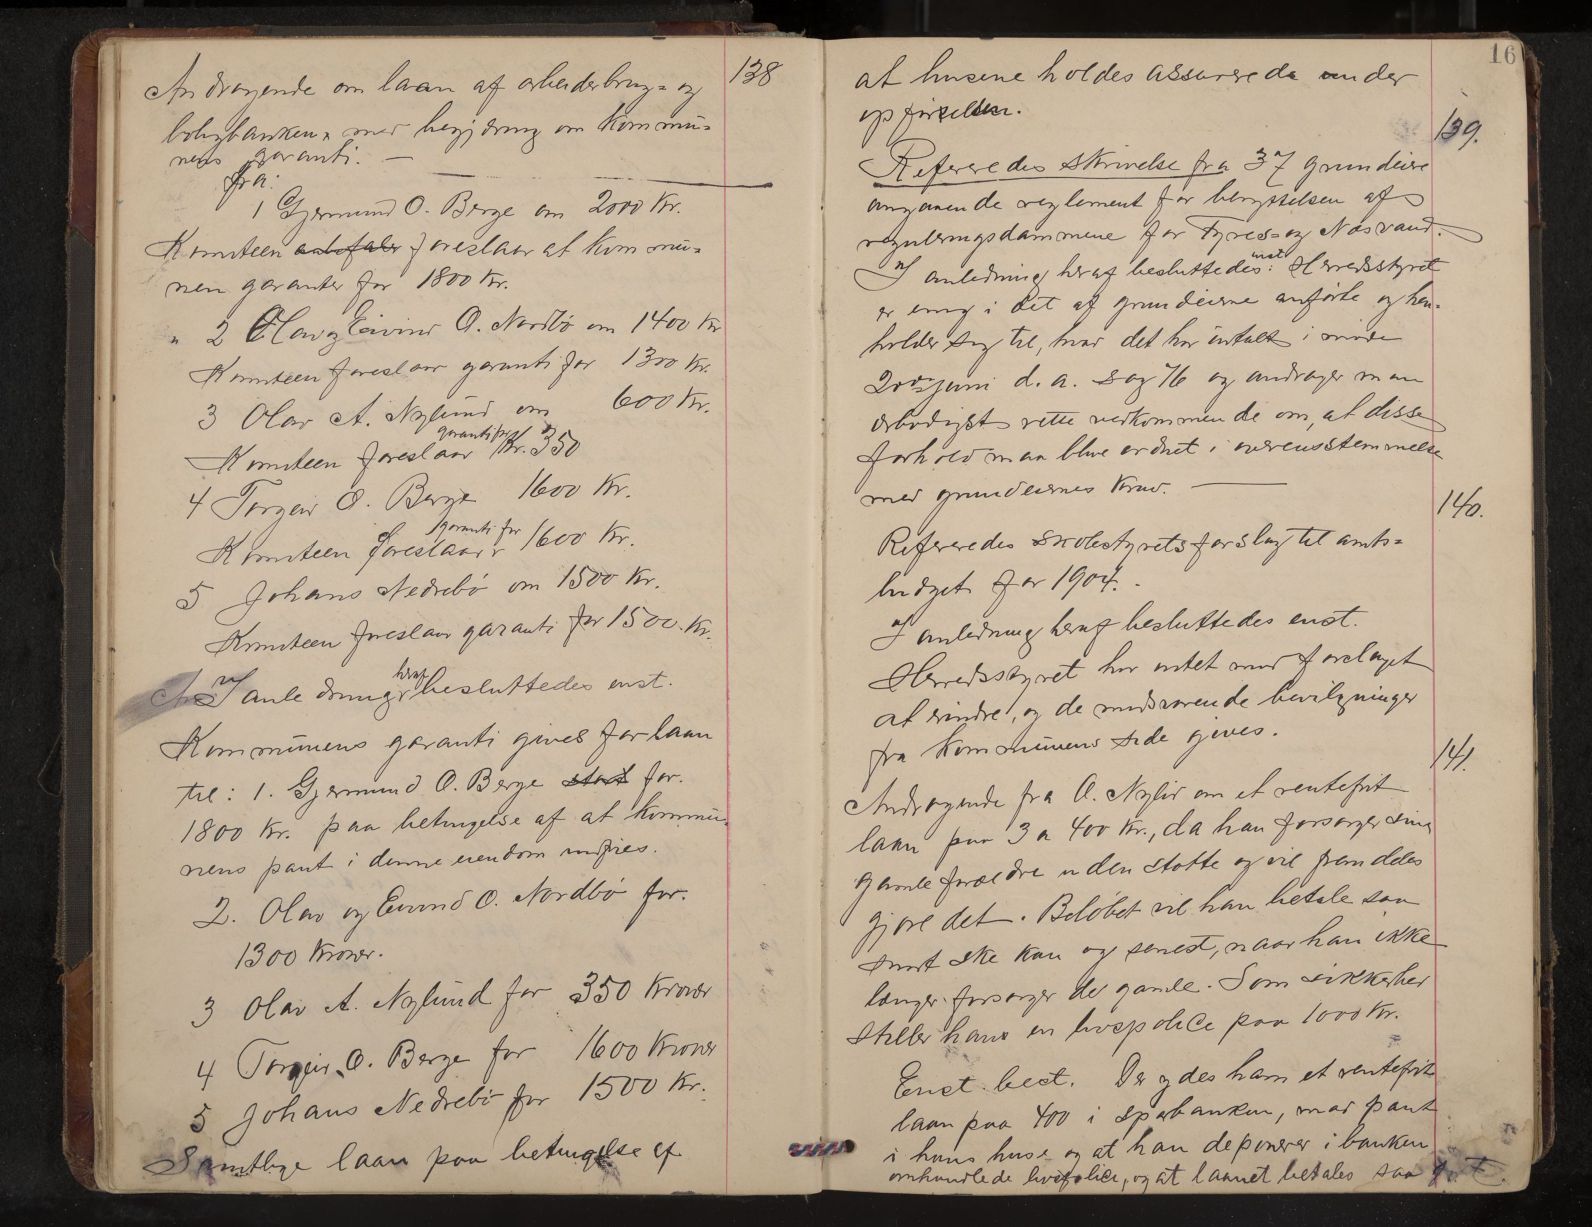 138
Andragende om laan af arbeiderbrug= og
boligbanken, med begjæring om kommu=
nens garanti. —
fra:
1 Gjermund O. Berge om 2000 Kr.
Komiteen anbefaler foreslaar at kommu=
nen garanter for 1800 Kr.
" 2 Olav og Eivind O. Nordbö om 1400 Kr
Komiteen foreslaar garanti for 1300 Kr.
3 Olav A. Nylund om 600 Kr.
Komiteen foreslaar garanti for Kr. 350
4 Torgeir O. Berge 1600 Kr.
Komiteen foreslaar garanti for 1600 Kr.
5 Johans Nedrebö om 1500 Kr.
Komiteen foreslaar garanti for 1500 Kr.
I anledning heraf besluttedes enst.
Kommunens garanti gives for laan
til: 1. Gjermund O. Berge stort for.
1800 Kr. paa betingelse af at kommu=
nens pant i denne eiendom indfries.
2. Olav og Eivind O. Nordbö for.
1300 Kroner.
3 Olav A. Nylund for 350 Kroner
4 Torgeir O. Berge for 1600 Kroner
5 Johans Nedrebö for 1500 Kr.
Samtlige laan paa betingelse af
16
at husene holdes assurerede under
opførelsen.
139.
Referedes skrivelse fra 37 grundeiere
angaaende reglement for benyttelsen af
reguleringsdammene for Fyres= og Næsvand.
I anledning heraf besluttedes enst: Herredsstyret
er enig i det af grundeierne anförte og hen=
holder sig til, hvad det har udtalt i möde
20de juni d. a. sag 76 og andrager man
ærbödigst rette vedkommende om, at disse
forhold maa blive ordnet i overensstemmelse
med grundeiernes krav. —
140.
Refereredes skolestyrets forslag til amts=
budget for 1904.
I anledning heraf besluttedes enst.
Herredsstyret har intet mod forslaget
at erindre, og de modsvarende bevilgninger
fra kommunens side gives.
141.
Andragende fra O. Nylid om et rentefrit
laan paa 3 a 400 Kr., da han forsörger sine
gamle forældre uden stötte og vil fremdeles
gjöre det. Belöbet vil han betale saa
snart ske kan og senest, naar han ikke
længer forsörger de gamle. Som sikkerhed
stiller han en livspolice paa 1000 Kr.
Enst. best. Der ydes ham et rentefrit
laan paa 400 i sparbanken, mod pant
i hans huse og at han deponerer i banken
omhandlede livspolice, og at laanet betales saa